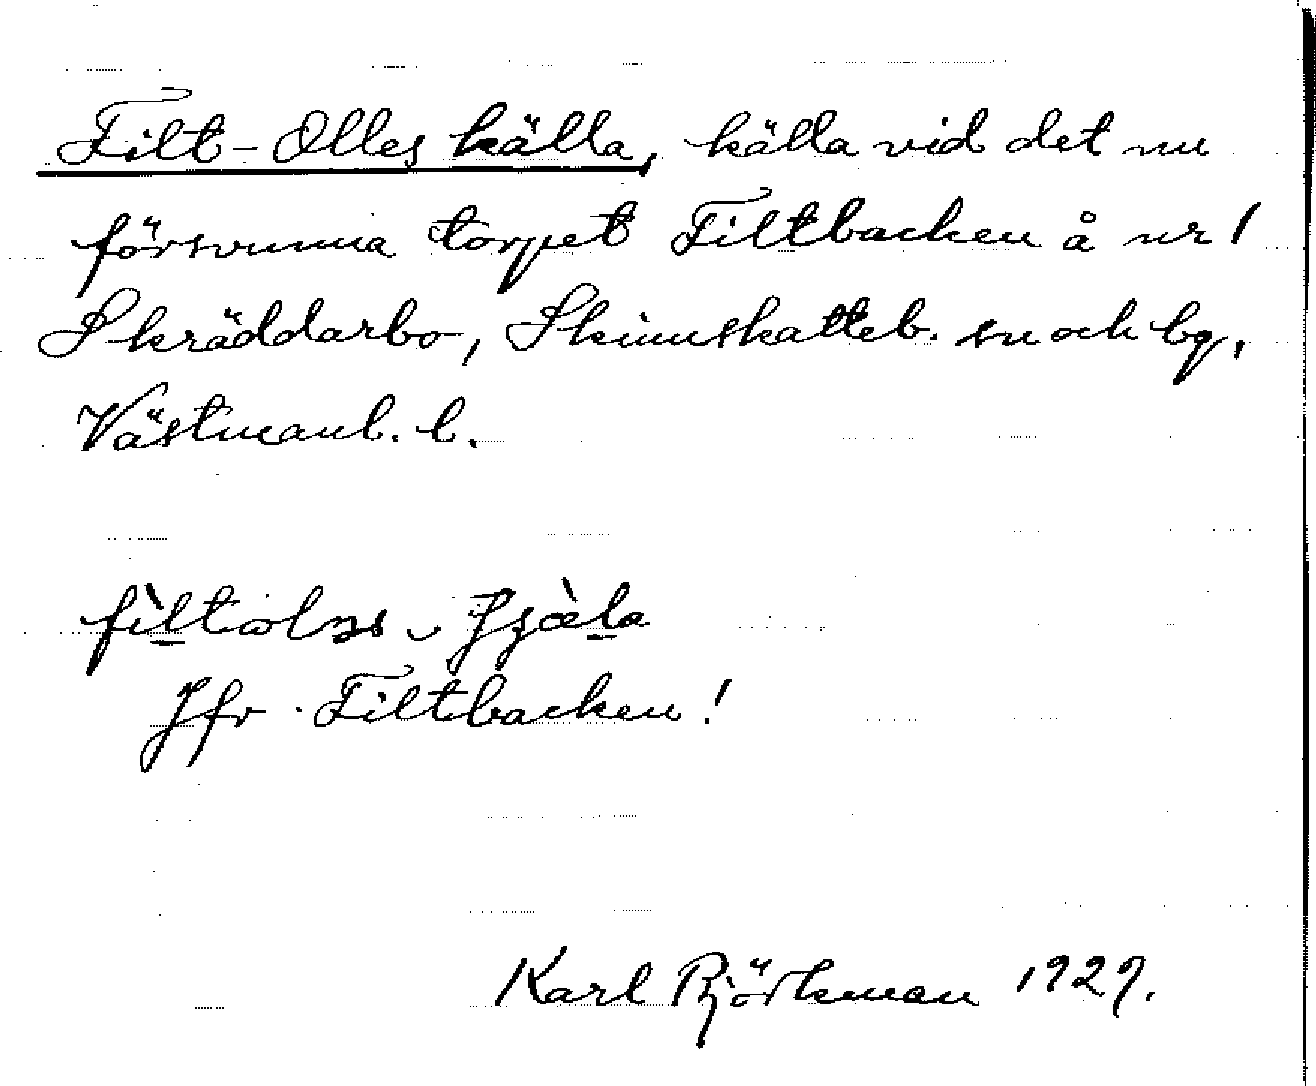 Filt-Olles källa, källa vid det nu
försvunna torpet Filtbacken å nr 1
Skräddarbo, Skinnskatteb. sn och bg,
Västmanl. l.
Jfr. Filtbacken!
Karl Björkman 1929.